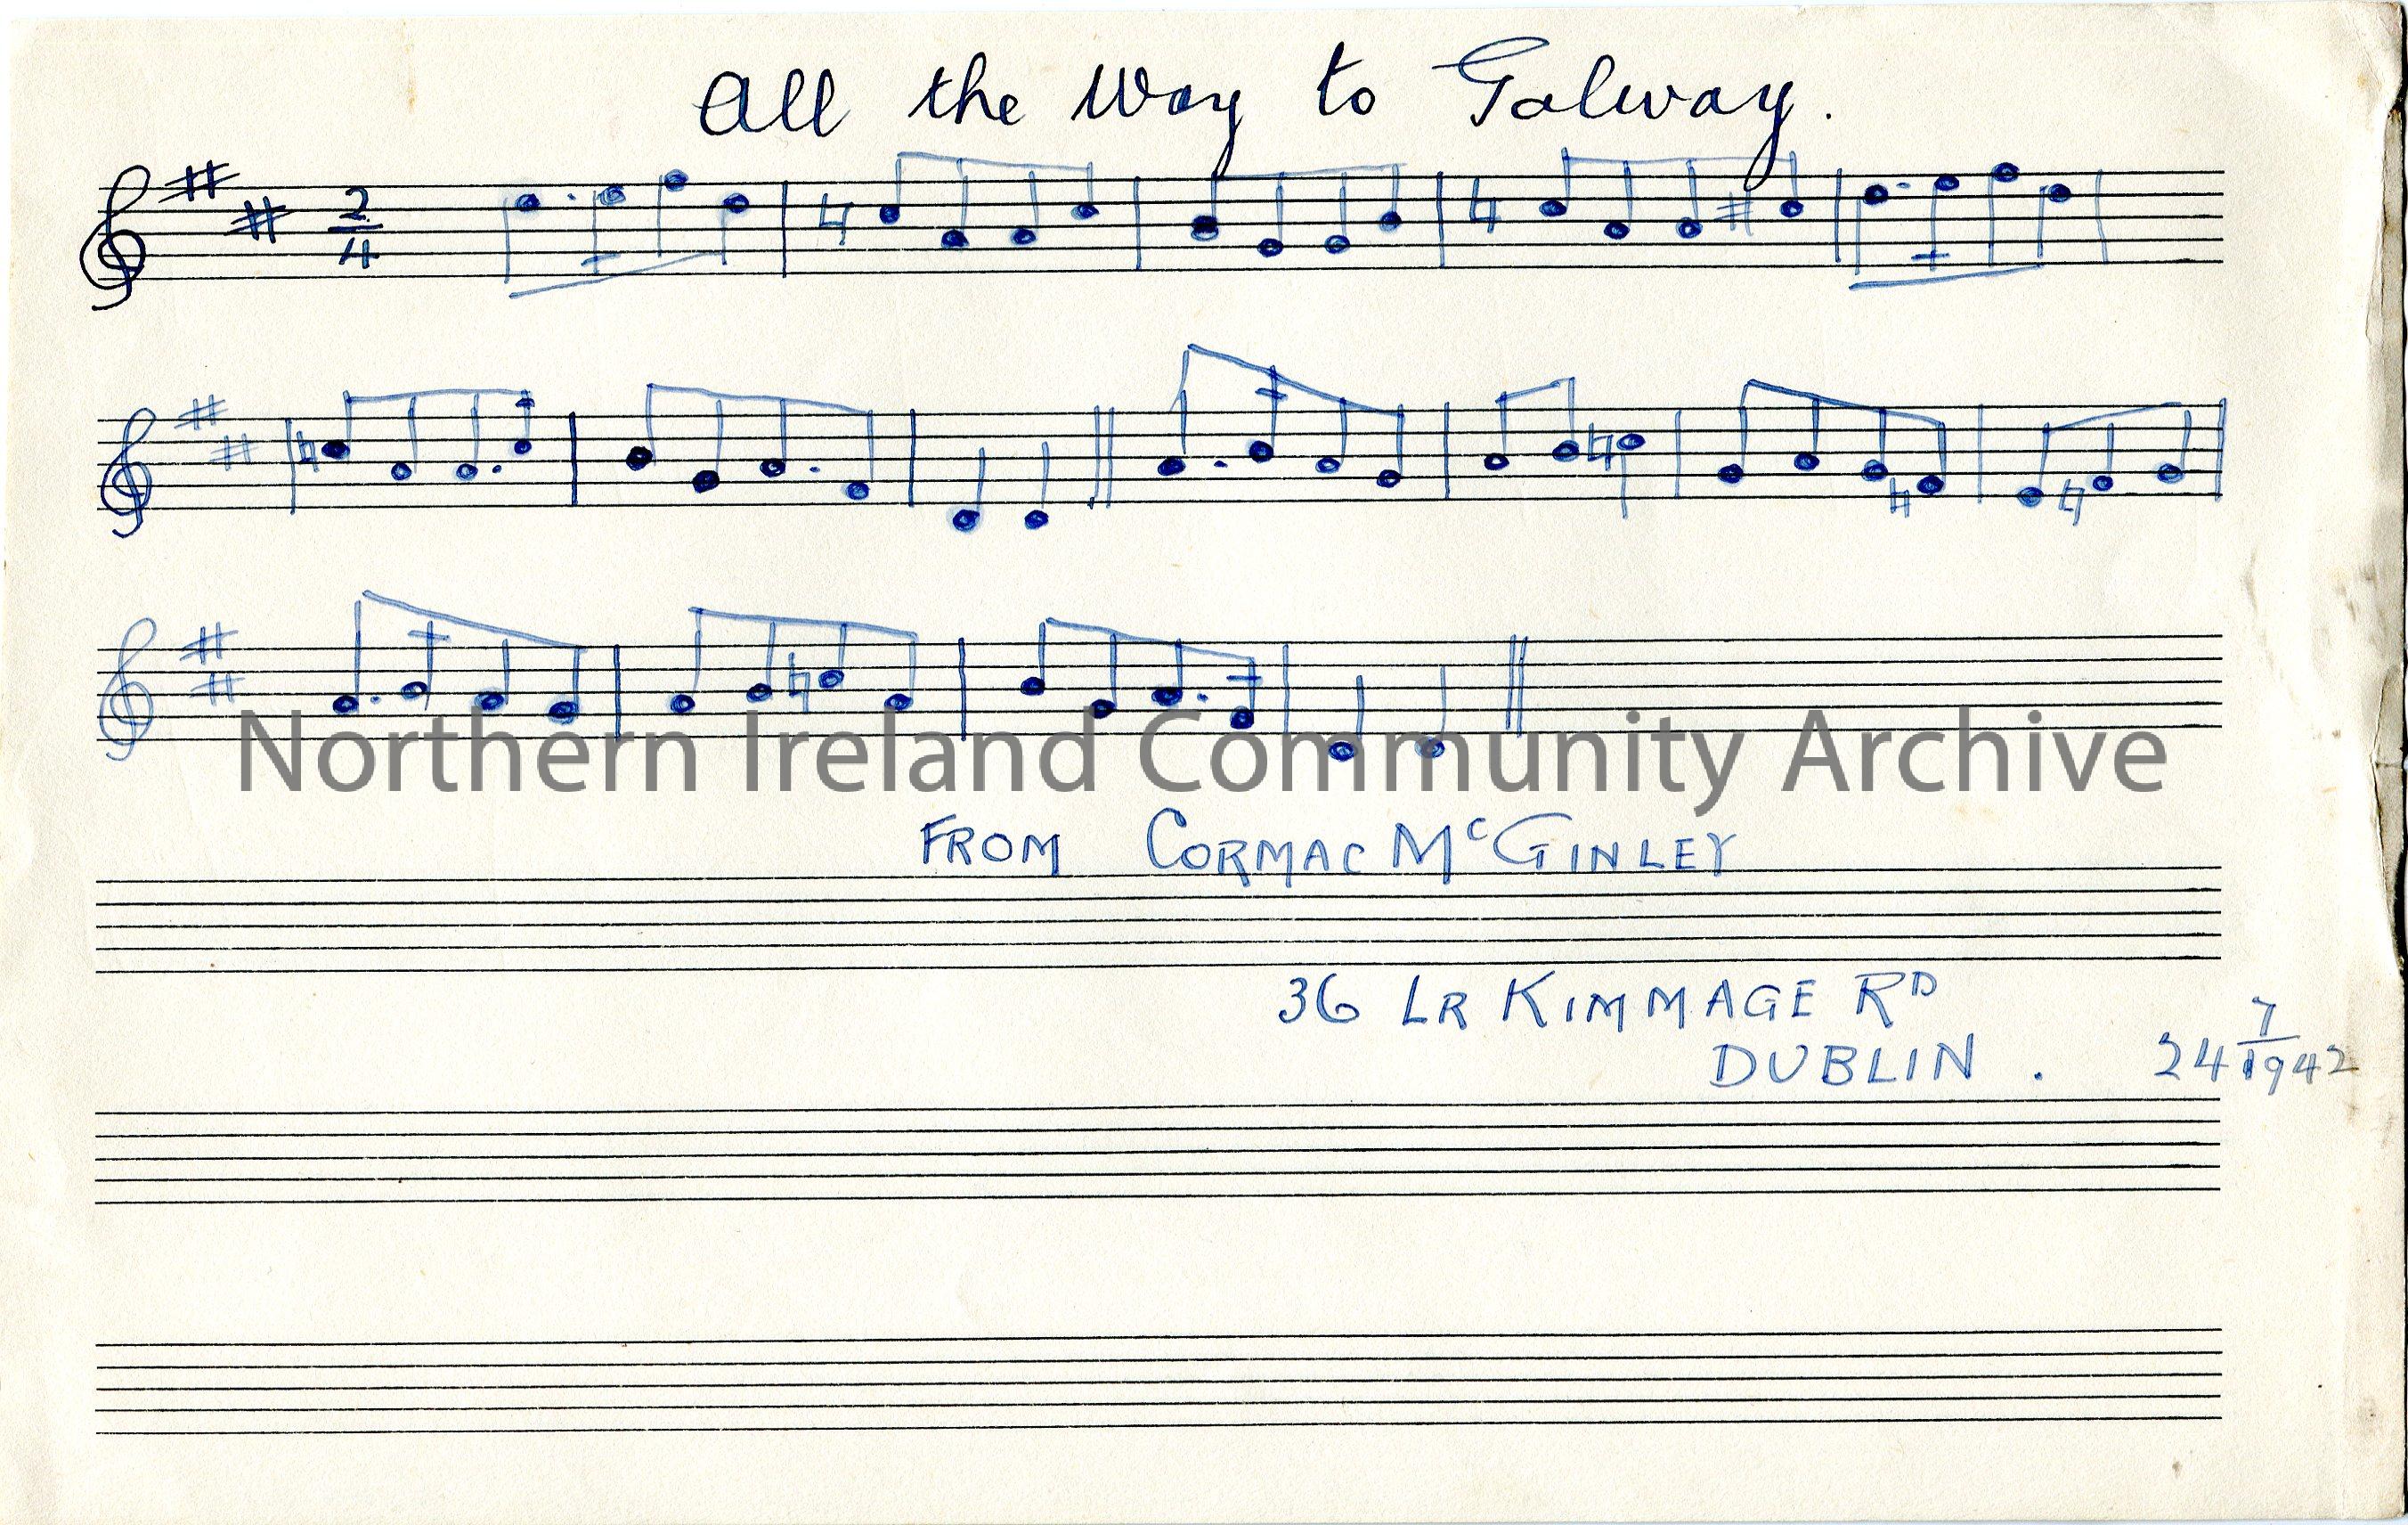 all the Way to Galway.
2
4
Northern Ireland Community Archive
FROM CORMAC McGINLEY
36 LR KIMMAGE RD
DUBLIN . 24 7/1942